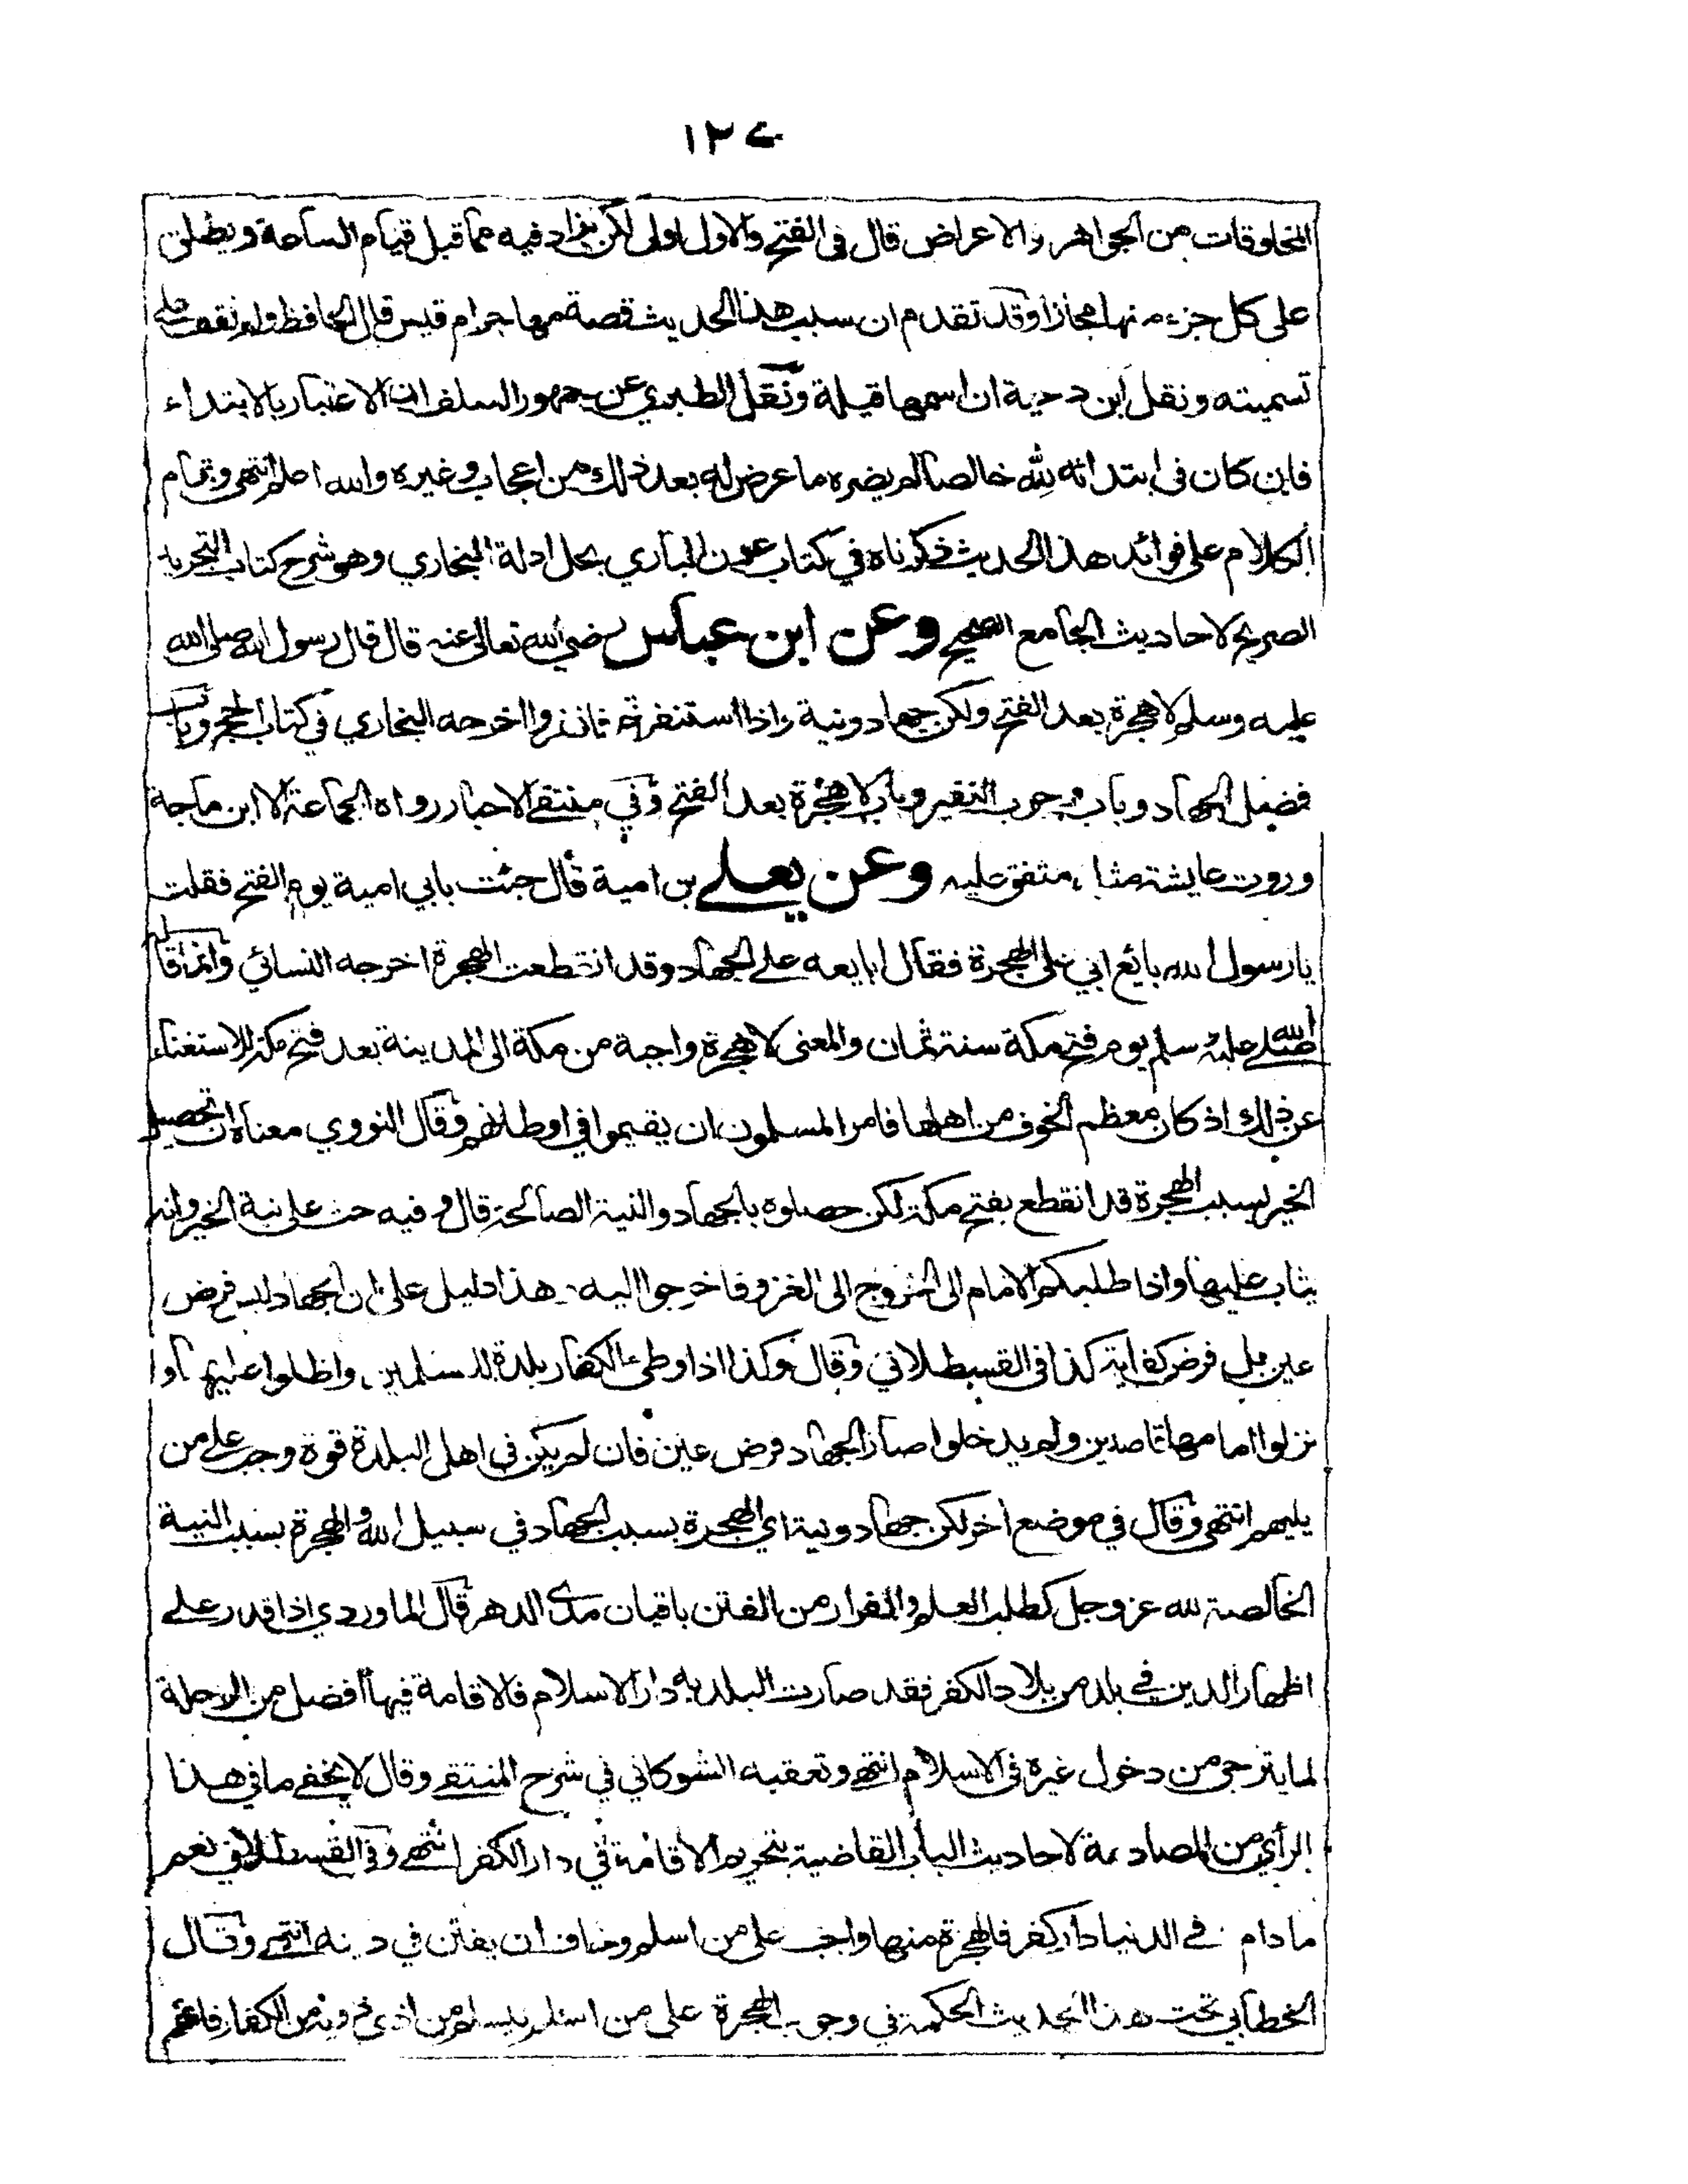 ١٢٧
المخلوقات من الجواهر والاعراض قال فى الفتح والاول اولى لكن يزاد فيه مما قبل قيام الساعة ويطلق
على كل جزء منها مجازا وقد تقدم ان سبب هذا الحديث قصة مهاجر ام قيس قال الحافظ ولم نقف على
تسميته ونقل ابن دحية ان اسمها قيلة ونقل الطبري عن جمهور السلف ان الاعتبار بالابتداء
فان كان فى ابتدائه لله خالصا لم يضره ما عرض له بعد ذلك من اعجاب وغيره والله اعلم انتهى وتمام
الكلام على فوائد هذا الحديث ذكرناه في كتاب عون الباري بحل ادلة البخاري وهو شرح كتاب التجريد
الصريح لاحاديث الجامع الصحيح وعن ابن عباس رضي الله تعالى عنه قال قال رسول الله صلى الله
عليه وسلم لا هجرة بعد الفتح ولكن جهاد ونية واذا استنفرتم فانفروا اخرجه البخاري في كتاب الحج وباب
فضل الجهاد وباب وجوب النفير وباب لا هجرة بعد الفتح وفي منتقى الاخبار رواه الجماعة الا ابن ماجة
وروت عايشة مثله متفق عليه وعن يعلے بن امية قال جئت بابي امية يوم الفتح فقلت
يا رسول الله بائع ابي على الهجرة فقال ابايعه علے الجهاد وقد انقطعت الهجرة اخرجه النسائي وانما قاله
صلے الله عليه وسلم يوم فتح مكة سنة ثمان والمعنى لا هجرة واجبة من مكة الى المدينة بعد فتح مكة للاستغناء
عن ذلك اذ كان معظم الخوف من اهلها فامر المسلمون ان يقيموا في اوطانهم وقال النووي معناه ان تحصيل
الخير بسبب الهجرة قد انقطع بفتح مكة لكن حصلوه بالجهاد والنية الصالحة قال وفيه حث على نية الخير وانه
يثاب عليها واذا طلبكم الامام الى الخروج الى الغزو فاخرجوا اليه هذا دليل على ان الجهاد ليس فرض
عين بل فرض كفاية كذا فى القسطلاني وقال وكذا اذا وطئ الكفار بلدة للمسلمين واظلوا عليها او
نزلوا امامها قاصدين ولم يدخلوا صار الجهاد فرض عين فان لم يكن في اهل البلدة قوة وجب علے من
يليهم انتهى وقال في موضع اخر لكن جهاد ونية اي الهجرة بسبب الجهاد في سبيل الله والهجرة بسبب النية
الخالصة لله عز وجل كطلب العلم والفرار من الفتن باقيان مدى الدهر قال الماوردي اذا قدر علے
اظهار الدين فے بلد من بلاد الكفر فقد صارت البلد به دار الاسلام فالاقامة فيها افضل من الرحلة
لما يترجى من دخول غيره فى الاسلام انتهى وتعقبه الشوكاني في شرح المنتقے وقال لا يخفے ما في هذا
الرأي من المصادمة لاحاديث الباب القاضية بتحريم الاقامة في دار الكفر انتهے وفى القسطلاني نعم
ما دام فے الدنيا دار كفر فالهجرة منها واجب على من اسلم وخاف ان يفتن في دينه انتهى وقال
الخطابي تحت هذا الحديث الحكمة في وجوب الهجرة على من اسلم ليسلم من اذى ذويه من الكفار فانهم